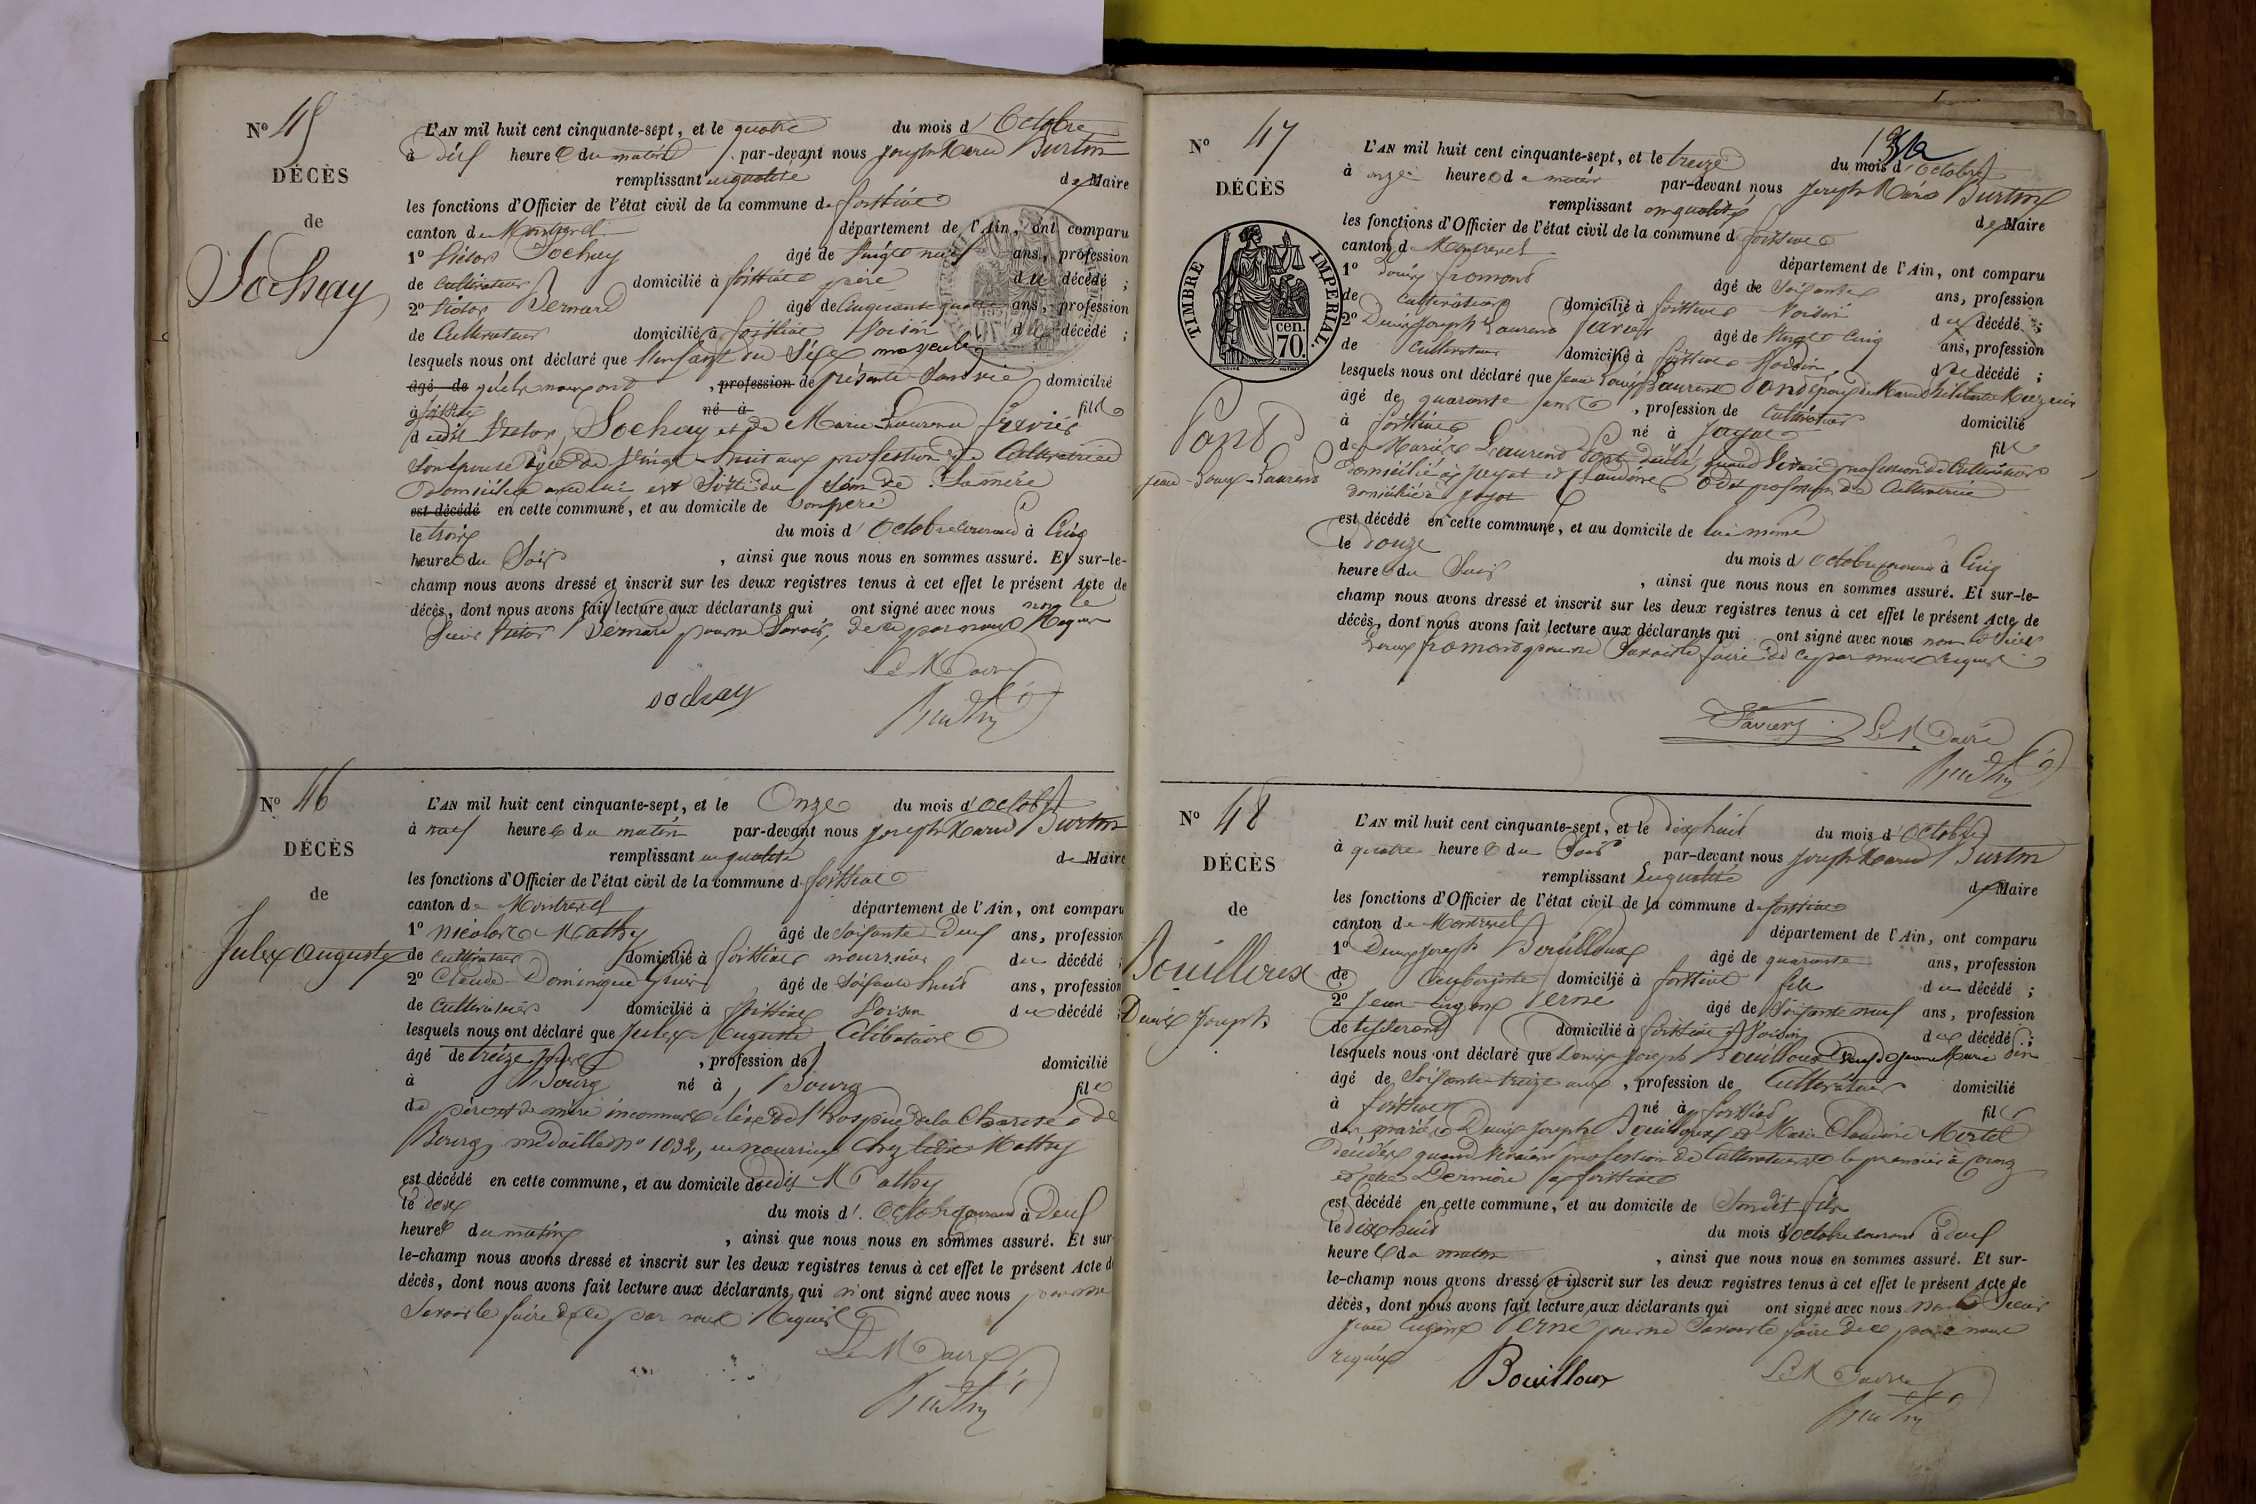 N° 45
DÉCÈS
de
Sochay
L'AN mil huit cent cinquante-sept, et le quatre du mois d'Octobre
à dix heures du matin, par-devant nous Joseph Marie Burtin
remplissant en qualité de Maire
les fonctions d'Officier de l'état civil de la commune de foissiat
canton de Montrevel département de l'Ain, ont comparu
1° Victor Sochay âgé de Vingt neuf ans, profession
de Cultivateur domicilié à foissiat père du décédé ;
2° Victor Bernard âgé de Cinquante quatre ans, profession
de Cultivateur domicilié à foissiat Voisin du décédé ;
lesquels nous ont déclaré que l'enfant du Sexe masculin
âgé de qu'elx nous ont , profession de présenté Sans vie domicilié
à foissiat né à fils
dudit Victor Sochay et de Marie Laurence
Son épouse âgée de Vingt huit ans profession de Cultivatrice
domiciliée avec lui est Sortie du Sein de Sa mère
est décédé en cette commune, et au domicile de Son père
le trois du mois d'Octobre courant à Cinq
heures du Soir , ainsi que nous nous en sommes assuré. Et sur-le-
champ nous avons dressé et inscrit sur les deux registres tenus à cet effet le présent Acte de
décès, dont nous avons fait lecture aux déclarants qui ont signé avec nous non le
Sieur Victor Bernard pour ne Savoir, de ce par nous Requis
Le Maire
sochay
N° 46
DÉCÈS
de
Jules Auguste
L'AN mil huit cent cinquante-sept, et le Onze du mois d'Octobre
à neuf heures du matin par-devant nous Joseph Marie Burtin
remplissant en qualité de Maire
les fonctions d'Officier de l'état civil de la commune de foissiat
canton de Montrevel département de l'Ain, ont comparu
1° Nicolas Mathy âgé de Soixante Deux ans, profession
de Cultivateur domicilié à foissiat nourricier du décédé ;
2° Claude Dominique âgé de Soixante huit ans, profession
de Cultivateur domicilié à foissiat Voisin du décédé ;
lesquels nous ont déclaré que Jules Auguste Célibataire
âgé de treize jours , profession de domicilié
à Bourg né à Bourg fils
de père et de mère inconnus élève de l'hospice de la Charité de
Bourg, médaille n° 1032, en nourrice chez ledit Mathy
est décédé en cette commune, et au domicile dudit Mathy
le dix du mois d'Octobre courant à Deux
heures du matin , ainsi que nous nous en sommes assuré. Et sur-
le-champ nous avons dressé et inscrit sur les deux registres tenus à cet effet le présent Acte de
décès, dont nous avons fait lecture aux déclarants qui n'ont signé avec nous pour ne
Savoir le faire de ce par nous Requis
Le Maire
N° 47
DÉCÈS
TIMBRE IMPERIAL.
70 cen.
Pont
Jean-Louis-Laurent
L'AN mil huit cent cinquante-sept, et le treize du mois d'Octobre
à onze heures du matin par-devant nous Joseph Marie Burtin
remplissant en qualité de Maire
les fonctions d'Officier de l'état civil de la commune de foissiat
canton de Montrevel département de l'Ain, ont comparu
1° Louis fromont âgé de Soixante ans, profession
de Cultivateur domicilié à foissiat Voisin du décédé ;
2° Denis Joseph Laurent favier âgé de Vingt Cinq ans, profession
de Cultivateur domicilié à foissiat Voisin du décédé ;
lesquels nous ont déclaré que Jean Louis Laurent Pont époux de Marie
âgé de quarante ans , profession de Cultivateur domicilié
à foissiat né à Jayat fils
de Marie Laurent Pont décédé, quand Vivait profession de Cultivateur
domicilié à Jayat et Claudine profession de Cultivatrice
domiciliée à Jayat
est décédé en cette commune, et au domicile de lui même
le douze du mois d'Octobre courant à Cinq
heures du Soir , ainsi que nous nous en sommes assuré. Et sur-le-
champ nous avons dressé et inscrit sur les deux registres tenus à cet effet le présent Acte de
décès, dont nous avons fait lecture aux déclarants qui ont signé avec nous non le Sieur
Louis fromont pour ne Savoir le faire de ce par nous Requis
Favier
Le Maire
N° 48
DÉCÈS
de
Bouilloux
Denis Joseph
L'AN mil huit cent cinquante-sept, et le dix huit du mois d'Octobre
à quatre heures du Soir par-devant nous Joseph Marie Burtin
remplissant en qualité de Maire
les fonctions d'Officier de l'état civil de la commune de foissiat
canton de Montrevel département de l'Ain, ont comparu
1° Denis Joseph Bouilloux âgé de quarante ans, profession
de Aubergiste domicilié à foissiat fils du décédé ;
2° Jean Eugène Verne âgé de Soixante neuf ans, profession
de tisserand domicilié à foissiat Voisin du décédé ;
lesquels nous ont déclaré que Denis Joseph Bouilloux Veuf de Jeanne Marie
âgé de Soixante treize ans , profession de Cultivateur domicilié
à foissiat né à foissiat fils
de Denis Joseph Bouilloux et Marie Claudine Mortel
décédés quand Vivaient profession de Cultivateurs le premier à
et cette Dernière à foissiat
est décédé en cette commune, et au domicile de Son dit fils
le dix huit du mois d'Octobre courant à
heures du matin , ainsi que nous nous en sommes assuré. Et sur-
le-champ nous avons dressé et inscrit sur les deux registres tenus à cet effet le présent Acte de
décès, dont nous avons fait lecture aux déclarants qui ont signé avec nous non le Sieur
Jean Eugène Verne pour ne Savoir le faire de ce par nous
requis
Bouilloux
Le Maire